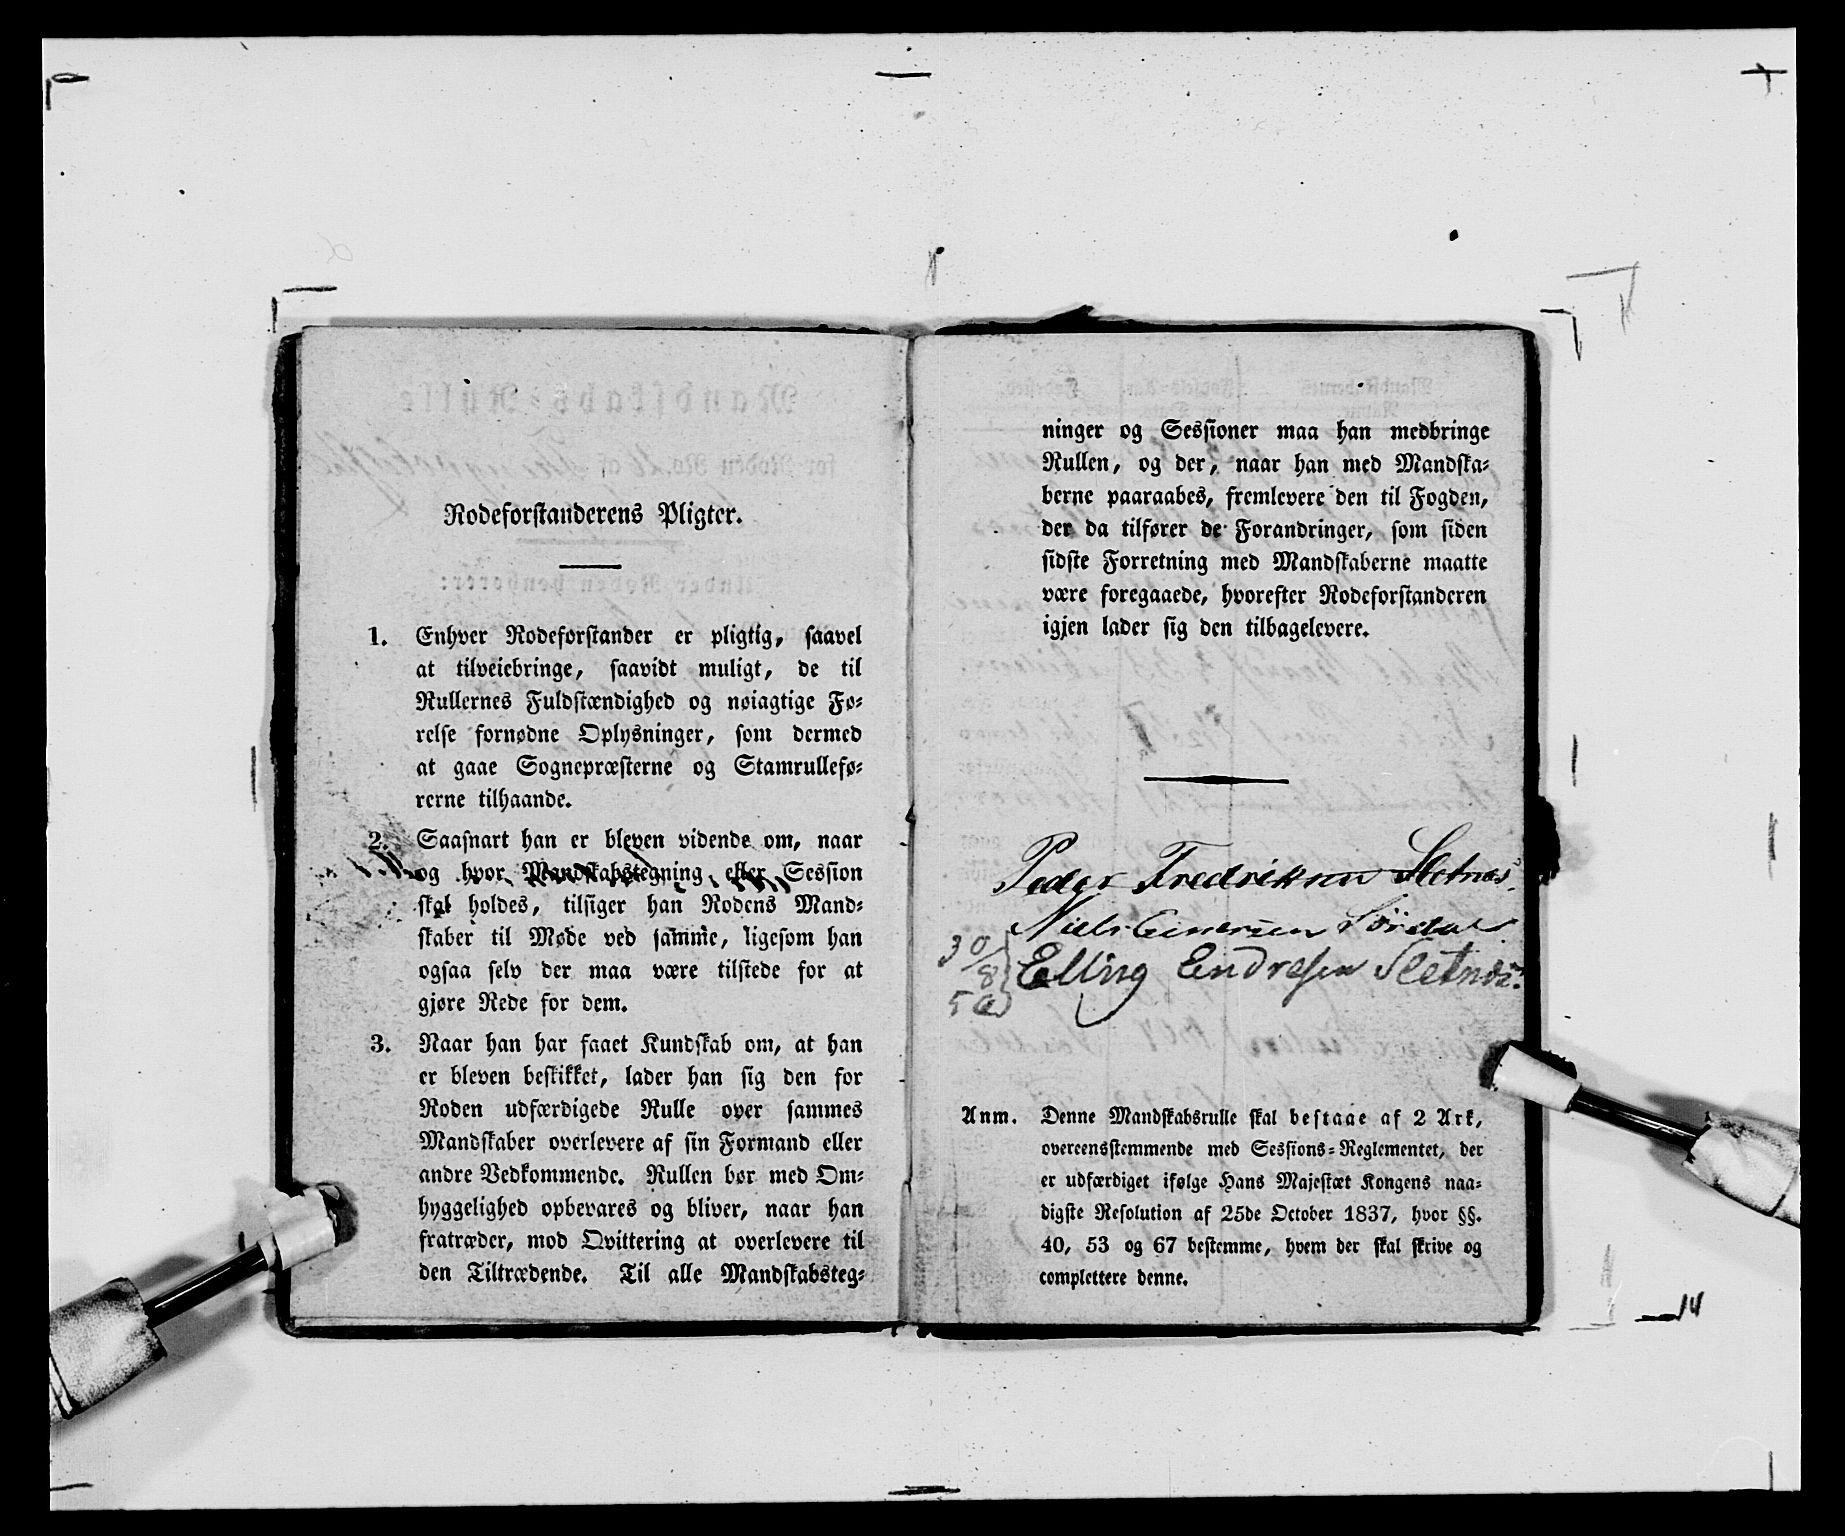 Rodeforstanderens Pligter.
1. Enhver Rodeforstander er pligtig, saavel
at tilveiebringe, saavidt muligt, de til
Rullernes Fuldstændighed og nøiagtige Fø-
relse fornødne Oplysninger, som dermed
at gaae Sognepræsterne og Stamrullefø-
rerne tilhaande.
2. Saasnart han er bleven vidende om, naar
og hvor Mandskabstegning eller Session
skal holdes, tilsiger han Rodens Mand-
skaber til Møde ved samme, ligesom han
ogsaa selv der maa være tilstede for at
gjøre Rede for dem.
3. Naar han har faaet Kundskab om, at han
er bleven beskikket, lader han sig den for
Roden udfærdigede Rulle over sammes
Mandskaber overlevere af sin Formand eller
andre Vedkommende. Rullen bør med Om-
hyggelighed opbevares og bliver, naar han
fratræder, mod Qvittering at overlevere til
den Tiltrædende. Til alle Mandskabsteg-
ninger og Sessioner maa han medbringe
Rullen, og der, naar han med Mandska-
berne paaraabes, fremlevere den til Fogden,
der da tilfører de Forandringer, som siden
sidste Forretning med Mandskaberne maatte
være foregaaede, hvorefter Rodeforstanderen
igjen lader sig den tilbagelevere.
Peder Fredriksen Sletnes
Niels Sørdal
30/8 Elling Endresen Sletnæs
Anm. Denne Mandskabsrulle skal bestaae af 2 Ark,
overeensstemmende med Sessions-Reglementet, der
er udfærdiget ifølge Hans Majestæt Kongens naa-
digste Resolution af 25de October 1837, hvor §§.
40, 53 og 67 bestemme, hvem der skal skrive og
complettere denne.
14